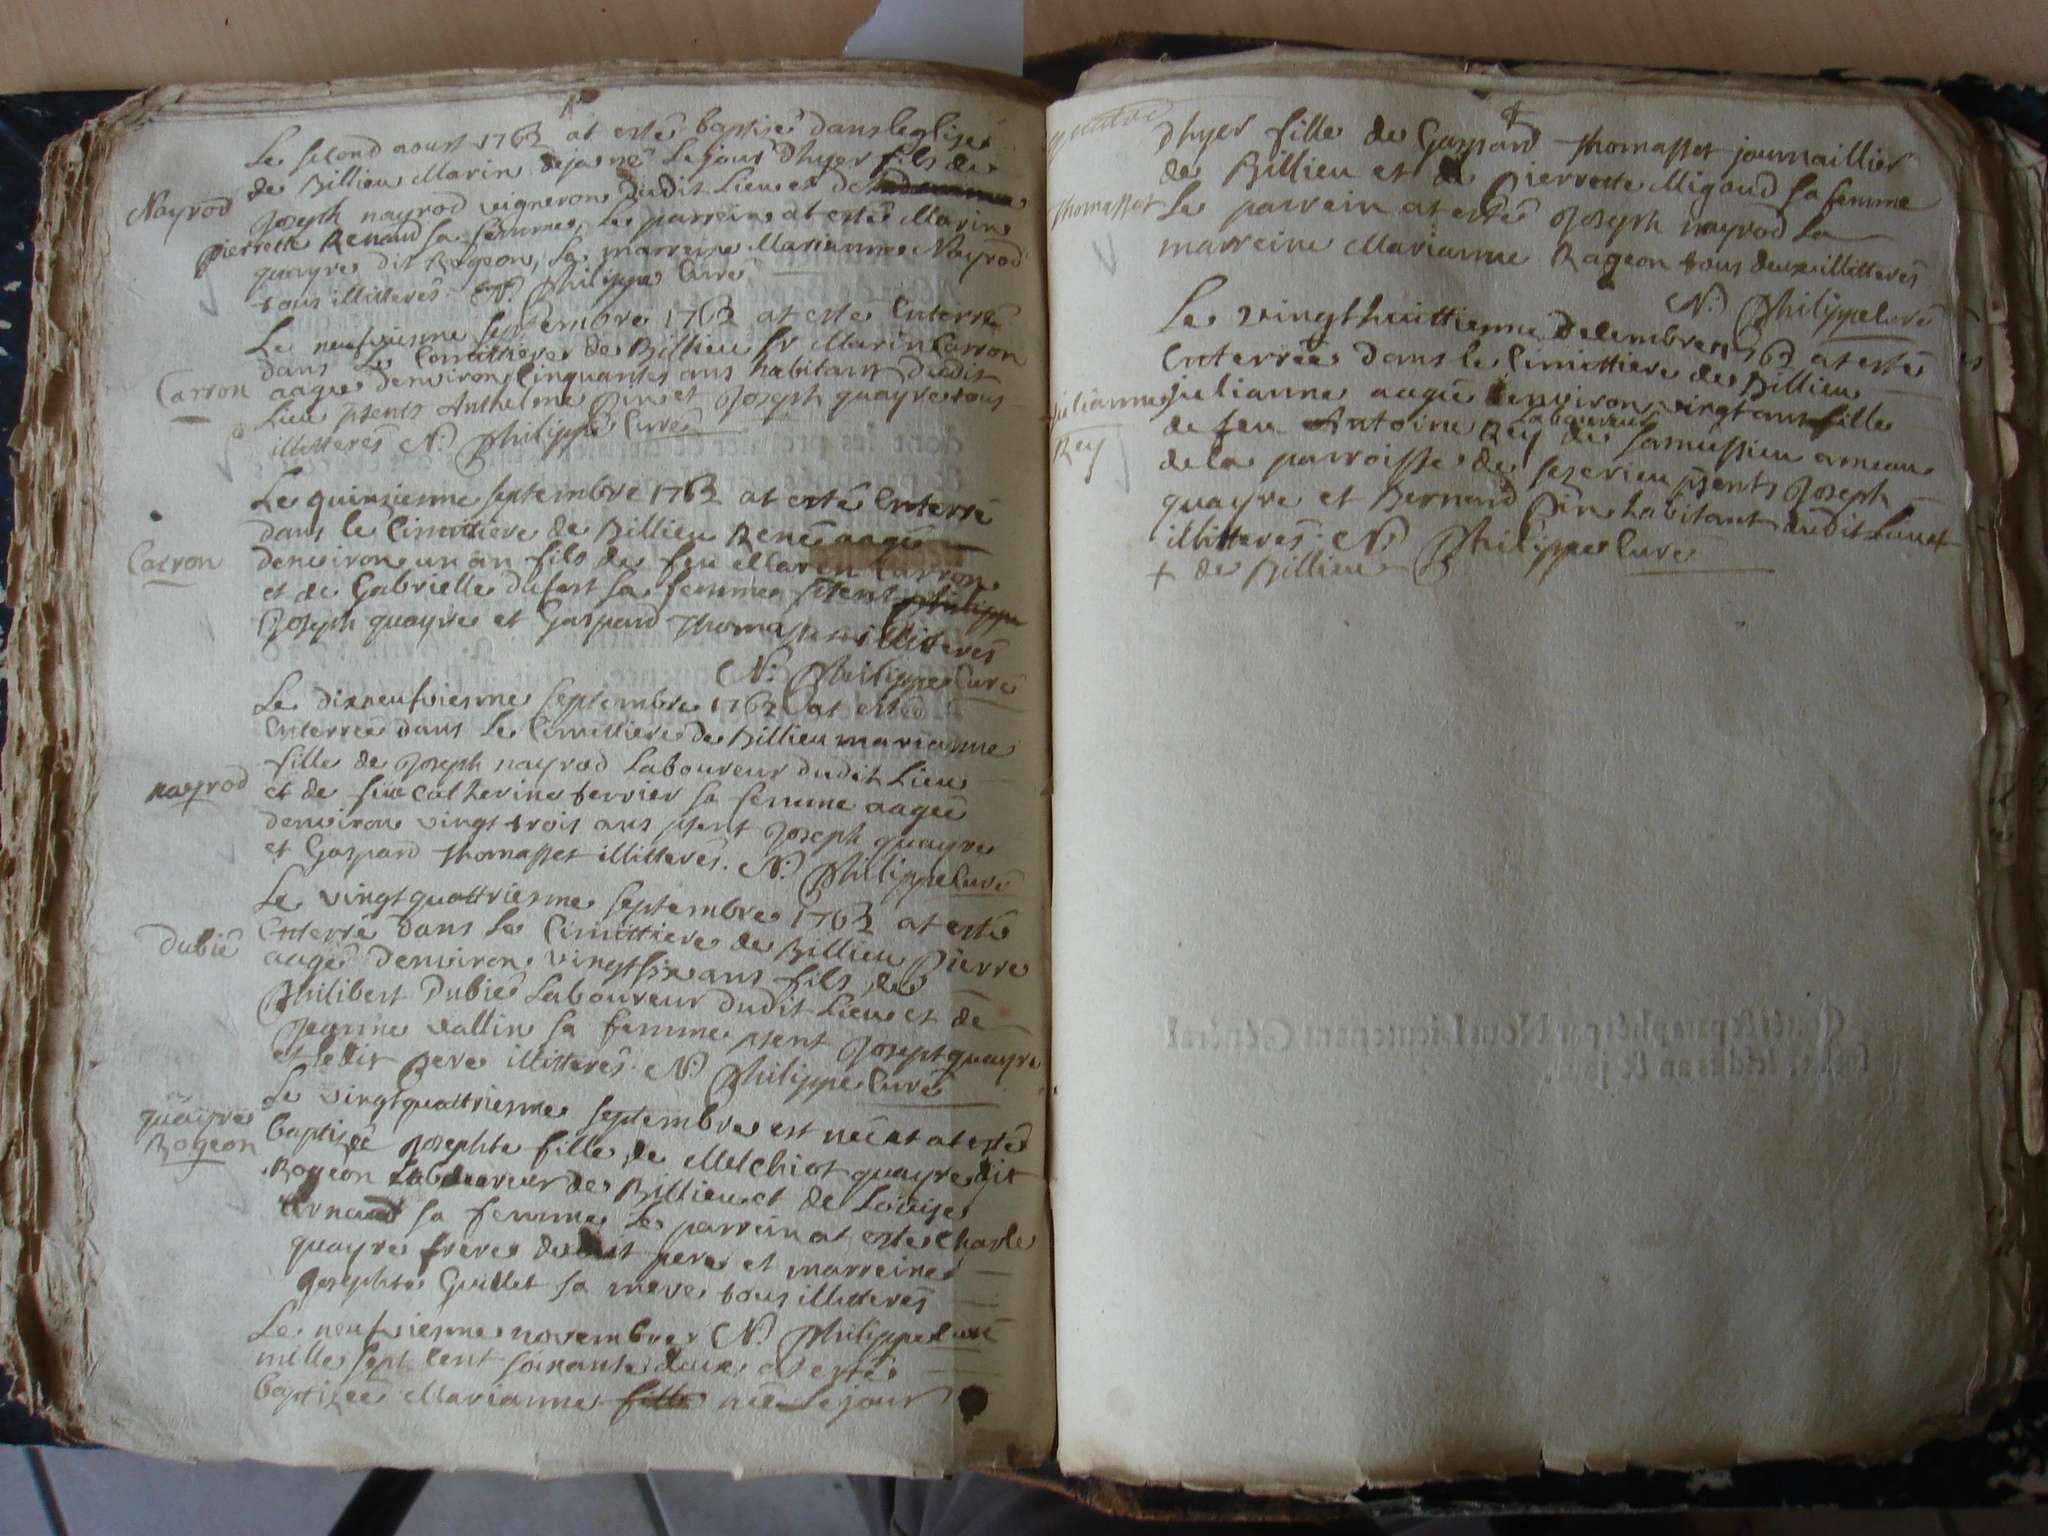 Nayrod
Le second aoust 1762 at esté baptisé dans leglise
de Billieu Marin deja né le jour dhyer fils de
Joseph nayrod vigneron dudit Lieu et de
pierrette Renaud sa femme, le parrein at esté Marin
quayre dit Rogeon, la marreine Marianne Nayrod
tous illitterés. N. Philippe Curé
Carron
Le neufvienne septembre 1762 at esté Enterré
dans Le Cimittiere de Billieu sr Marin Carron
aagé denviron Cinquantes ans habitant dudit
Lieu pnts Anthelme Pin et Joseph quayre tous
illitterés N. Philippe Curé
Carron
Le quinzienne septembre 1762 at esté Enterré
dans le Cimittiere de Billieu René aagé
denviron un an fils de feu Marin Carron
et de Gabrielle dufort sa femme psent philippe
Joseph quayre et Gaspard Thomasset illiterés
N. Philippe Curé
nayrod
Le dixneufvienne septembre 1762 at esté
Enterrée dans Le Cimittiere de Billieu marianne
fille de Joseph nayrod Laboureur dudit Lieu
et de feue Catherine ferrier sa femme aagée
denviron vingt trois ans psent Joseph quayre
et Gaspard Thomasset illitterés. N. Philippe Curé
Dubié
Le vingtquattrienne septembre 1762 at esté
Enterré dans Le Cimittiere de Billieu Pierre
aagé denviron vingtsix ans fils de
Philibert Dubié Laboureur dudit Lieu et de
Jeanne vallin sa femme psent Joseph quayre
et ledit pere illitterés. N. Philippe Curé
quayre
Rogeon
Le vingtquattrienne septembre est née et at esté
baptizée Josephte fille de Melchiot quayre dit
Rogeon Laboureur de Billieu et de Loüise
Arnaud sa femme Le parrein at esté Charle
quayre frere dudit pere et marreine
Josephte Guillet sa mere tous illitterés
N. Philippe Curé
Le neufvienne novembre
mille sept Cent soixante deux at estée
baptizée Marianne fille née Le jour
dhyer fille de Gaspard Thomasset journaillier
de Billieu et de Pierrette Migaud sa femme
Thomasset
Le parrein at esté Joseph nayrod La
marreine Marianne Rageon tous deux illitterés
N. Philippe Curé
Le vingthuittienne Decembre 1762 at esté
Enterrée dans le Cimittiere de Billieu
Julianne
Rey
julianne aagée denviron vingt ans fille
de feu Antoine Rey Laboureur de Samussieu ameau
de la parroisse de sezerieu psents Joseph
quayre et Bernard Pin habitant dudit Lieu +
illitterés. N. Philippe Curé
+ de Billieu